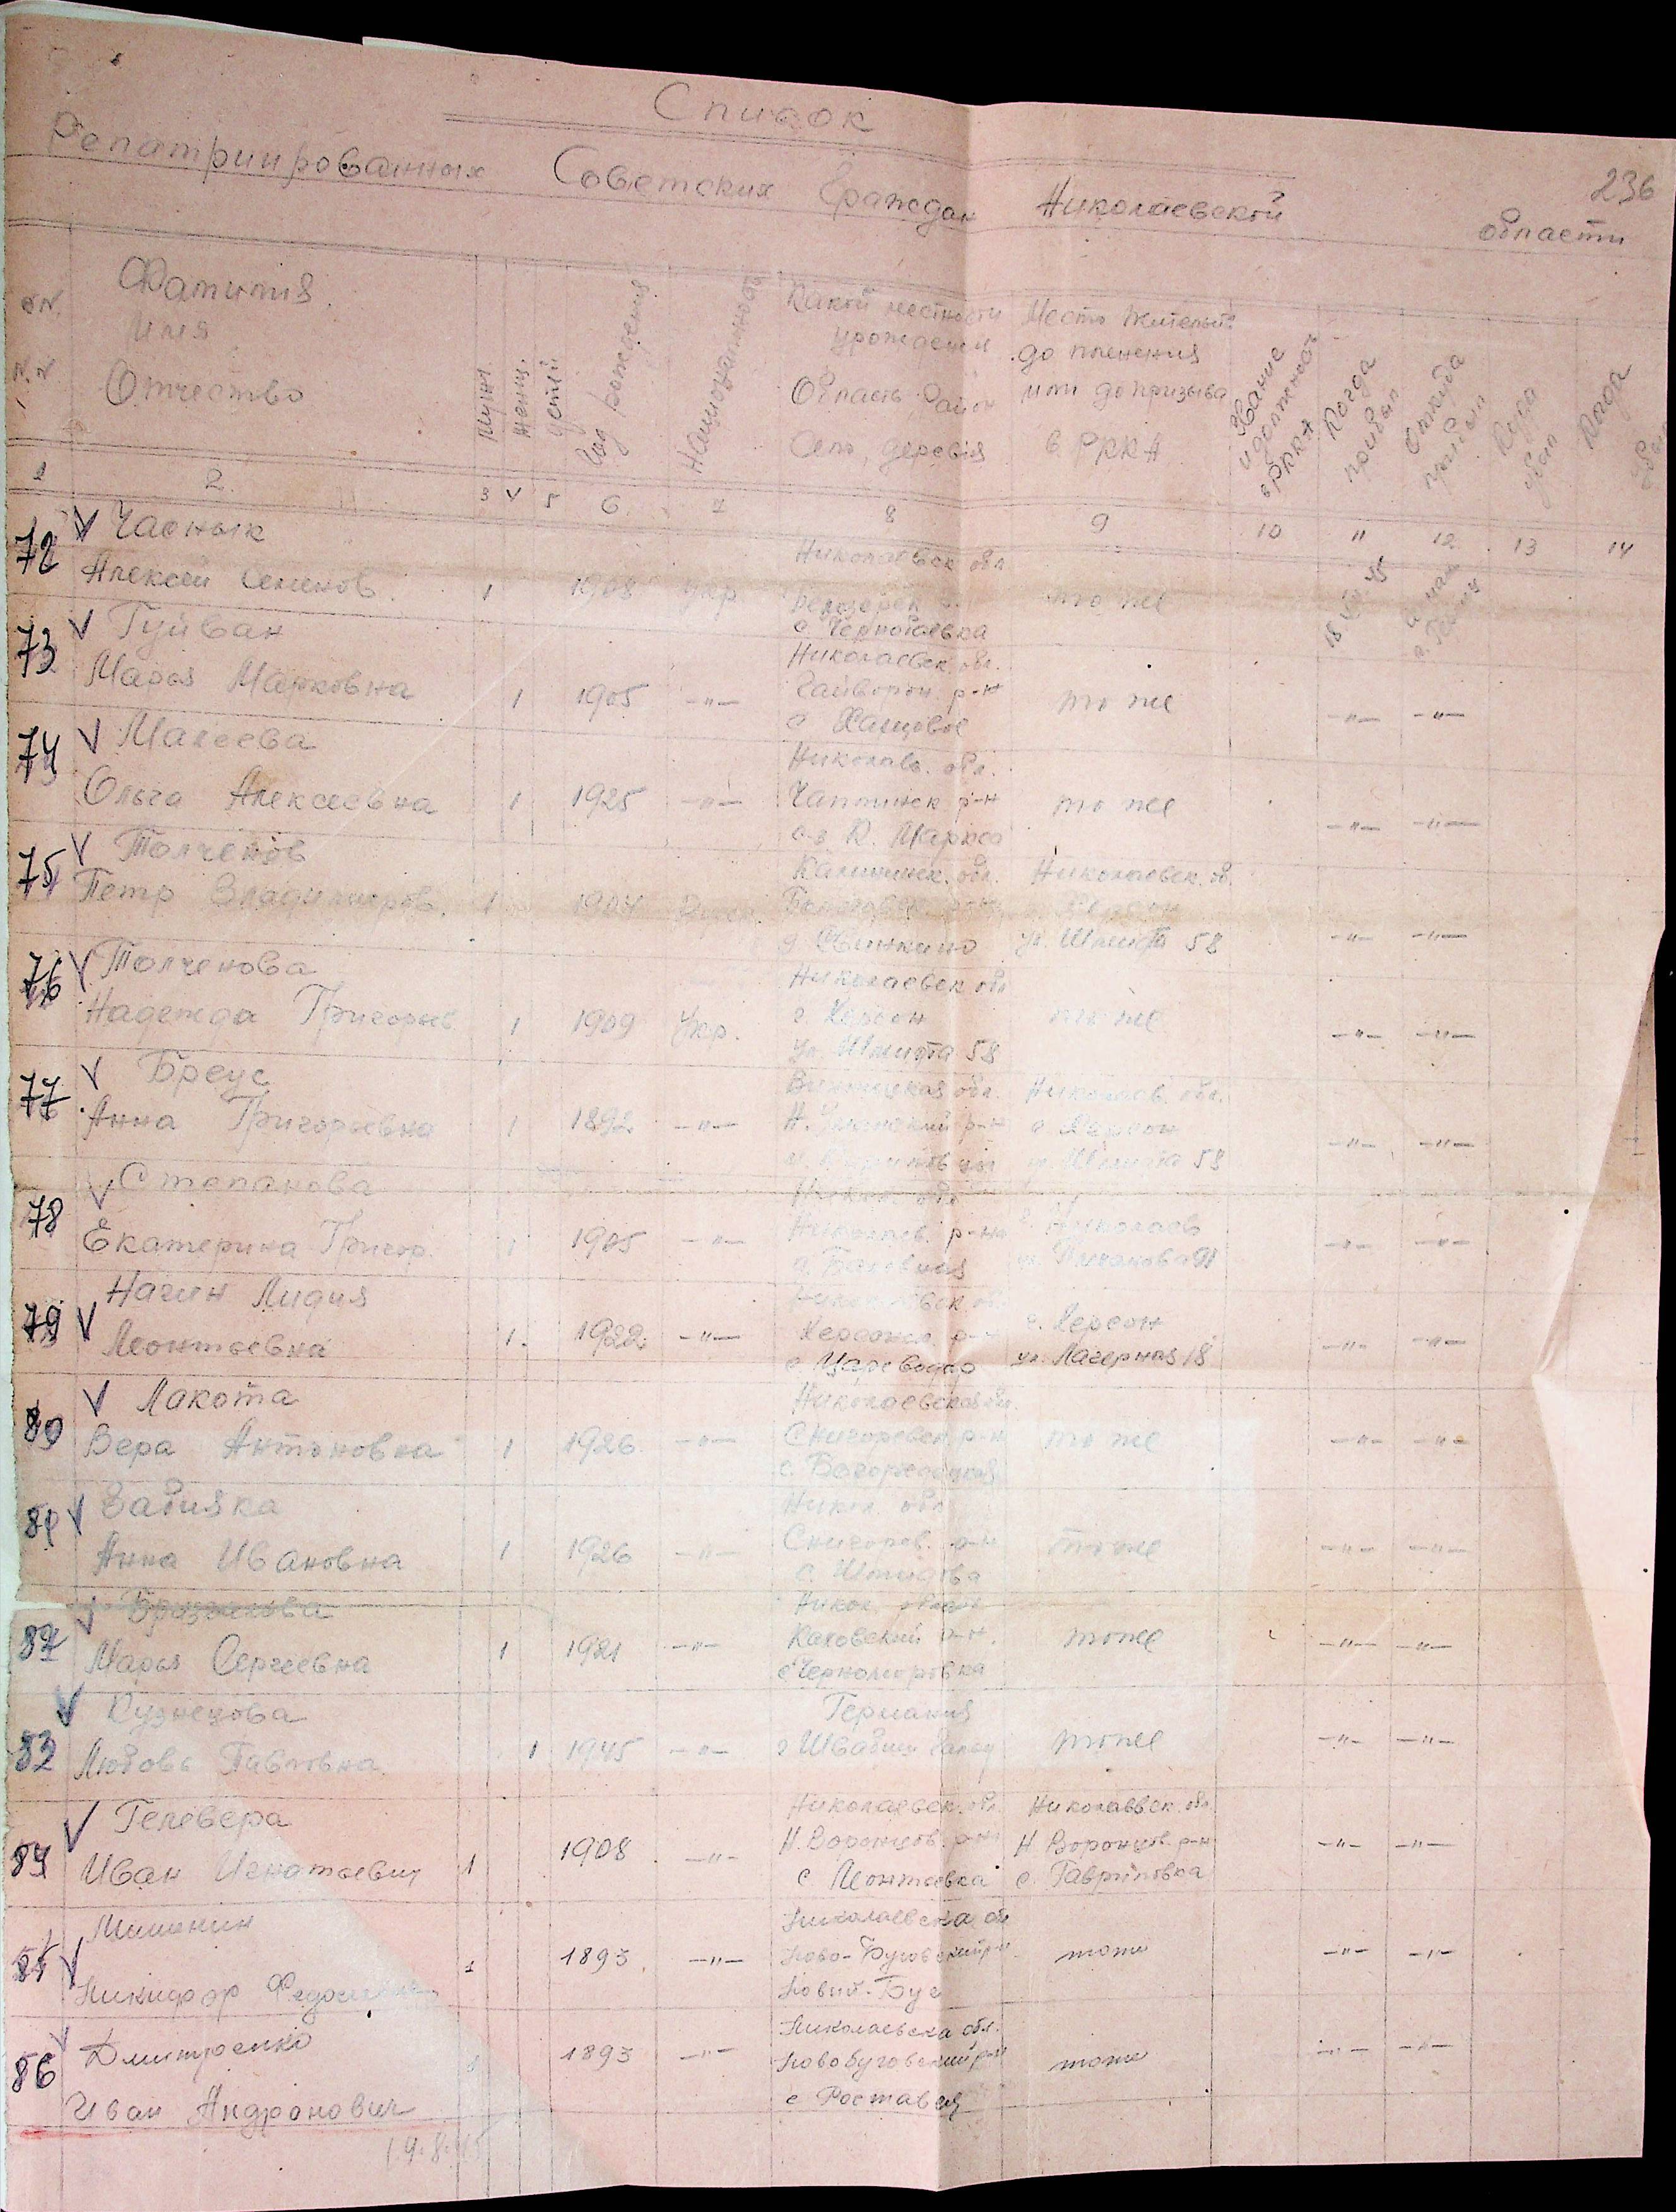 Список
236
Репатриированных Советских Граждан Николаевской области
№№ N.N
Фамилия
Имя
Отчество
Мужч.
Женщ.
детей
Год рождения
Национальность
Какой местности
урожденец
Область Район
Село, деревня
Место жительст.
до пленения
или до призыва
в РККА
Звание
и должность
в РККА
Когда
прибыл
Откуда
прибыл
Куда
убыл
Когда
убыл
1 2. 3 V 5 6. 7 8 9 10 11 12 13 14
72 V Часнык
Алексей Семенов. 1 1908 укр.
Николаевск обл
с. Чернобаевка
то же
18 45
73 V Гуйван
Марья Марковна 1 1905 -"-
Николаевск. обл.
Гайворон. р-н
с Хащовое
то же -"- -"-
74 V Малеева
Ольга Алексеевна 1 1925 -"-
Николаев. обл.
Чаплинск р-н
с-з К. Маркса
то же -"- -"-
75 V Толченов
Петр Владимиров. 1 1904 Русск.
Калининск. обл.
д Свинкино
Николаевск. об.
г. Херсон
ул. Шмидта 58
-"- -"-
76 V Толченова
Надежда Григорьев 1 1909 Укр.
Николаевск обл
г. Херсон
ул. Шмидта 58
то же -"- -"-
77 V Бреус
Анна Григорьевна 1 1892 -"-
Винницкая обл.
Николаев. обл.
г Херсон
ул. Шмидта 58
-"- -"-
78 V Степанова
Екатерина Григор. 1 1905 -"-
Никол. обл
Николаев. р-на
г. Николаев
-"- -"-
79 V Начин Лидия
Леонтьевна 1. 1922 -"-
Николаевск об
Херсонск р-н
с Царевода
г. Херсон
ул. Лагерная 18
-"- -"-
80 V Лакота
Вера Антоновна 1 1926 -"-
Николаевская обл.
Снигоревск р-н
с. Богородицкая
то же -"- -"-
81 V Забияка
Анна Ивановна 1 1926 -"-
Никол. обл
Снигорев. р-н
с. Шмидова
то же -"- -"-
82 V
Марья Сергеевна 1 1921 -"-
Никол. область
Каховский р-н.
с Черноморовка
то же -"- -"-
83 V Кузнецова
Любовь Павловна. 1 1945 -"-
Германия
то же -"- -"-
84 V Гелевера
Иван Игнатьевич 1 1908 -"-
Николаевск. обл
Н. Воронцов. р-н
с. Леонтьевка
Николаевск. обл
Н. Воронцов. р-н
с. Гавриловка
-"- -"-
85 V Мишинин
Никифор 1 1893 -"-
Николаевска об
Ново-Буговский р-н
Новий-Буг
то же -"- -"-
86 V Дмитренко
Иван Андронович 1 1893 -"-
Николаевска обл.
Новобуговский р-н
то же -"- -"-
19.8.45